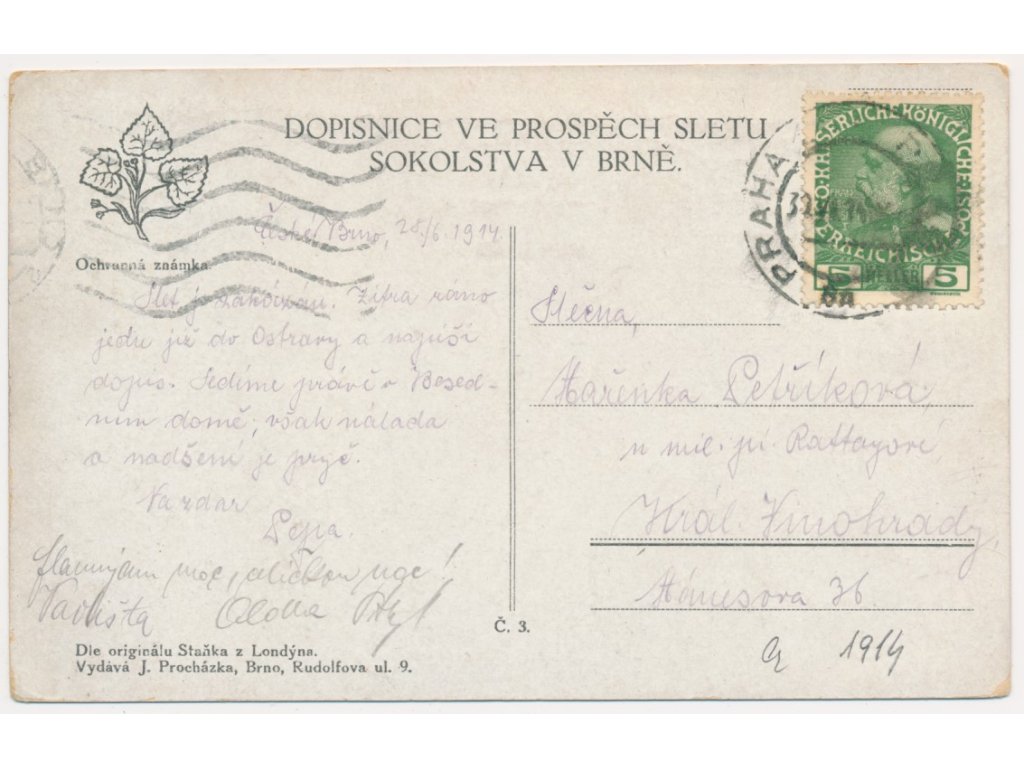 DOPISNICE VE PROSPĚCH SLETU
SOKOLSTVA V BRNĚ.
Ochranná známka.
České Brno, 28/6 1914
Slet je zakázán. Zítra ráno
jedu již do Ostravy a napíši
dopis. Sedíme právě v Besed-
ním domě, však nálada
a nadšení je pryč.
Na zdar
Pepa.
Dle originálu Staňka z Londýna.
Vydává J. Procházka, Brno, Rudolfova ul. 9.
Č. 3.
PRAHA
KAISERLICHE KÖNIGLICHE
5 HELLER 5
Slečna,
Mařenka Petříková,
u mil. pí. Rattayové
Král. Vinohrady,
Mánesova 36
1914